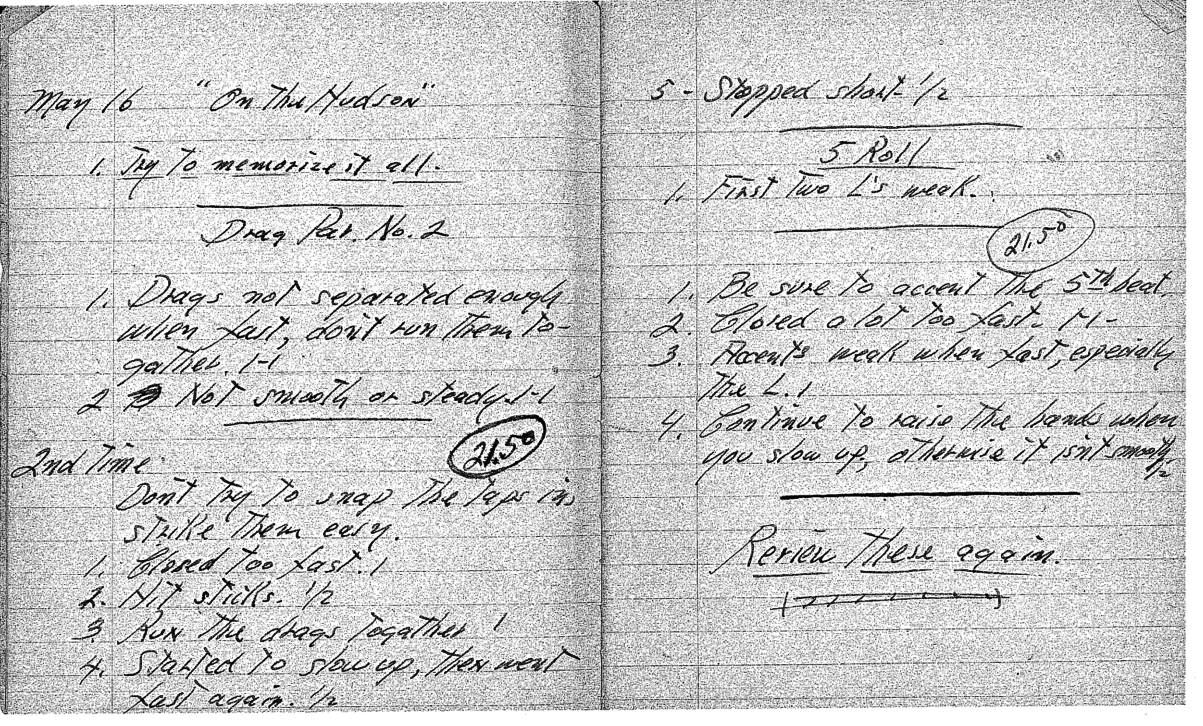 May 16 "On The Hudson"
1. Try To memorize it all.
Drag Par. No. 2
1. Drags not separated enough
when fast, don't run Them to-
gather. 1-1
2 Not smooth or steady. 1-1
21.50
2nd Time.
Don't Try to snap The Taps in,
strike Them easy.
1. Closed Too fast. 1
2. Hit sticks. 1/2
3. Run The drags Together 1
4. Started To slow up, Then went
fast again. 1/2
5 - Stopped short - 1/2
5 Roll
1. First Two L's weak.
21.50
1. Be sure to accent The 5th beat.
2. Closed a lot Too fast - 1-1-
3. Accents weak when fast, especially
The L. 1
4. Continue to raise The hands when
you slow up, otherwise it isn't smooth. 1/2
Review These again.